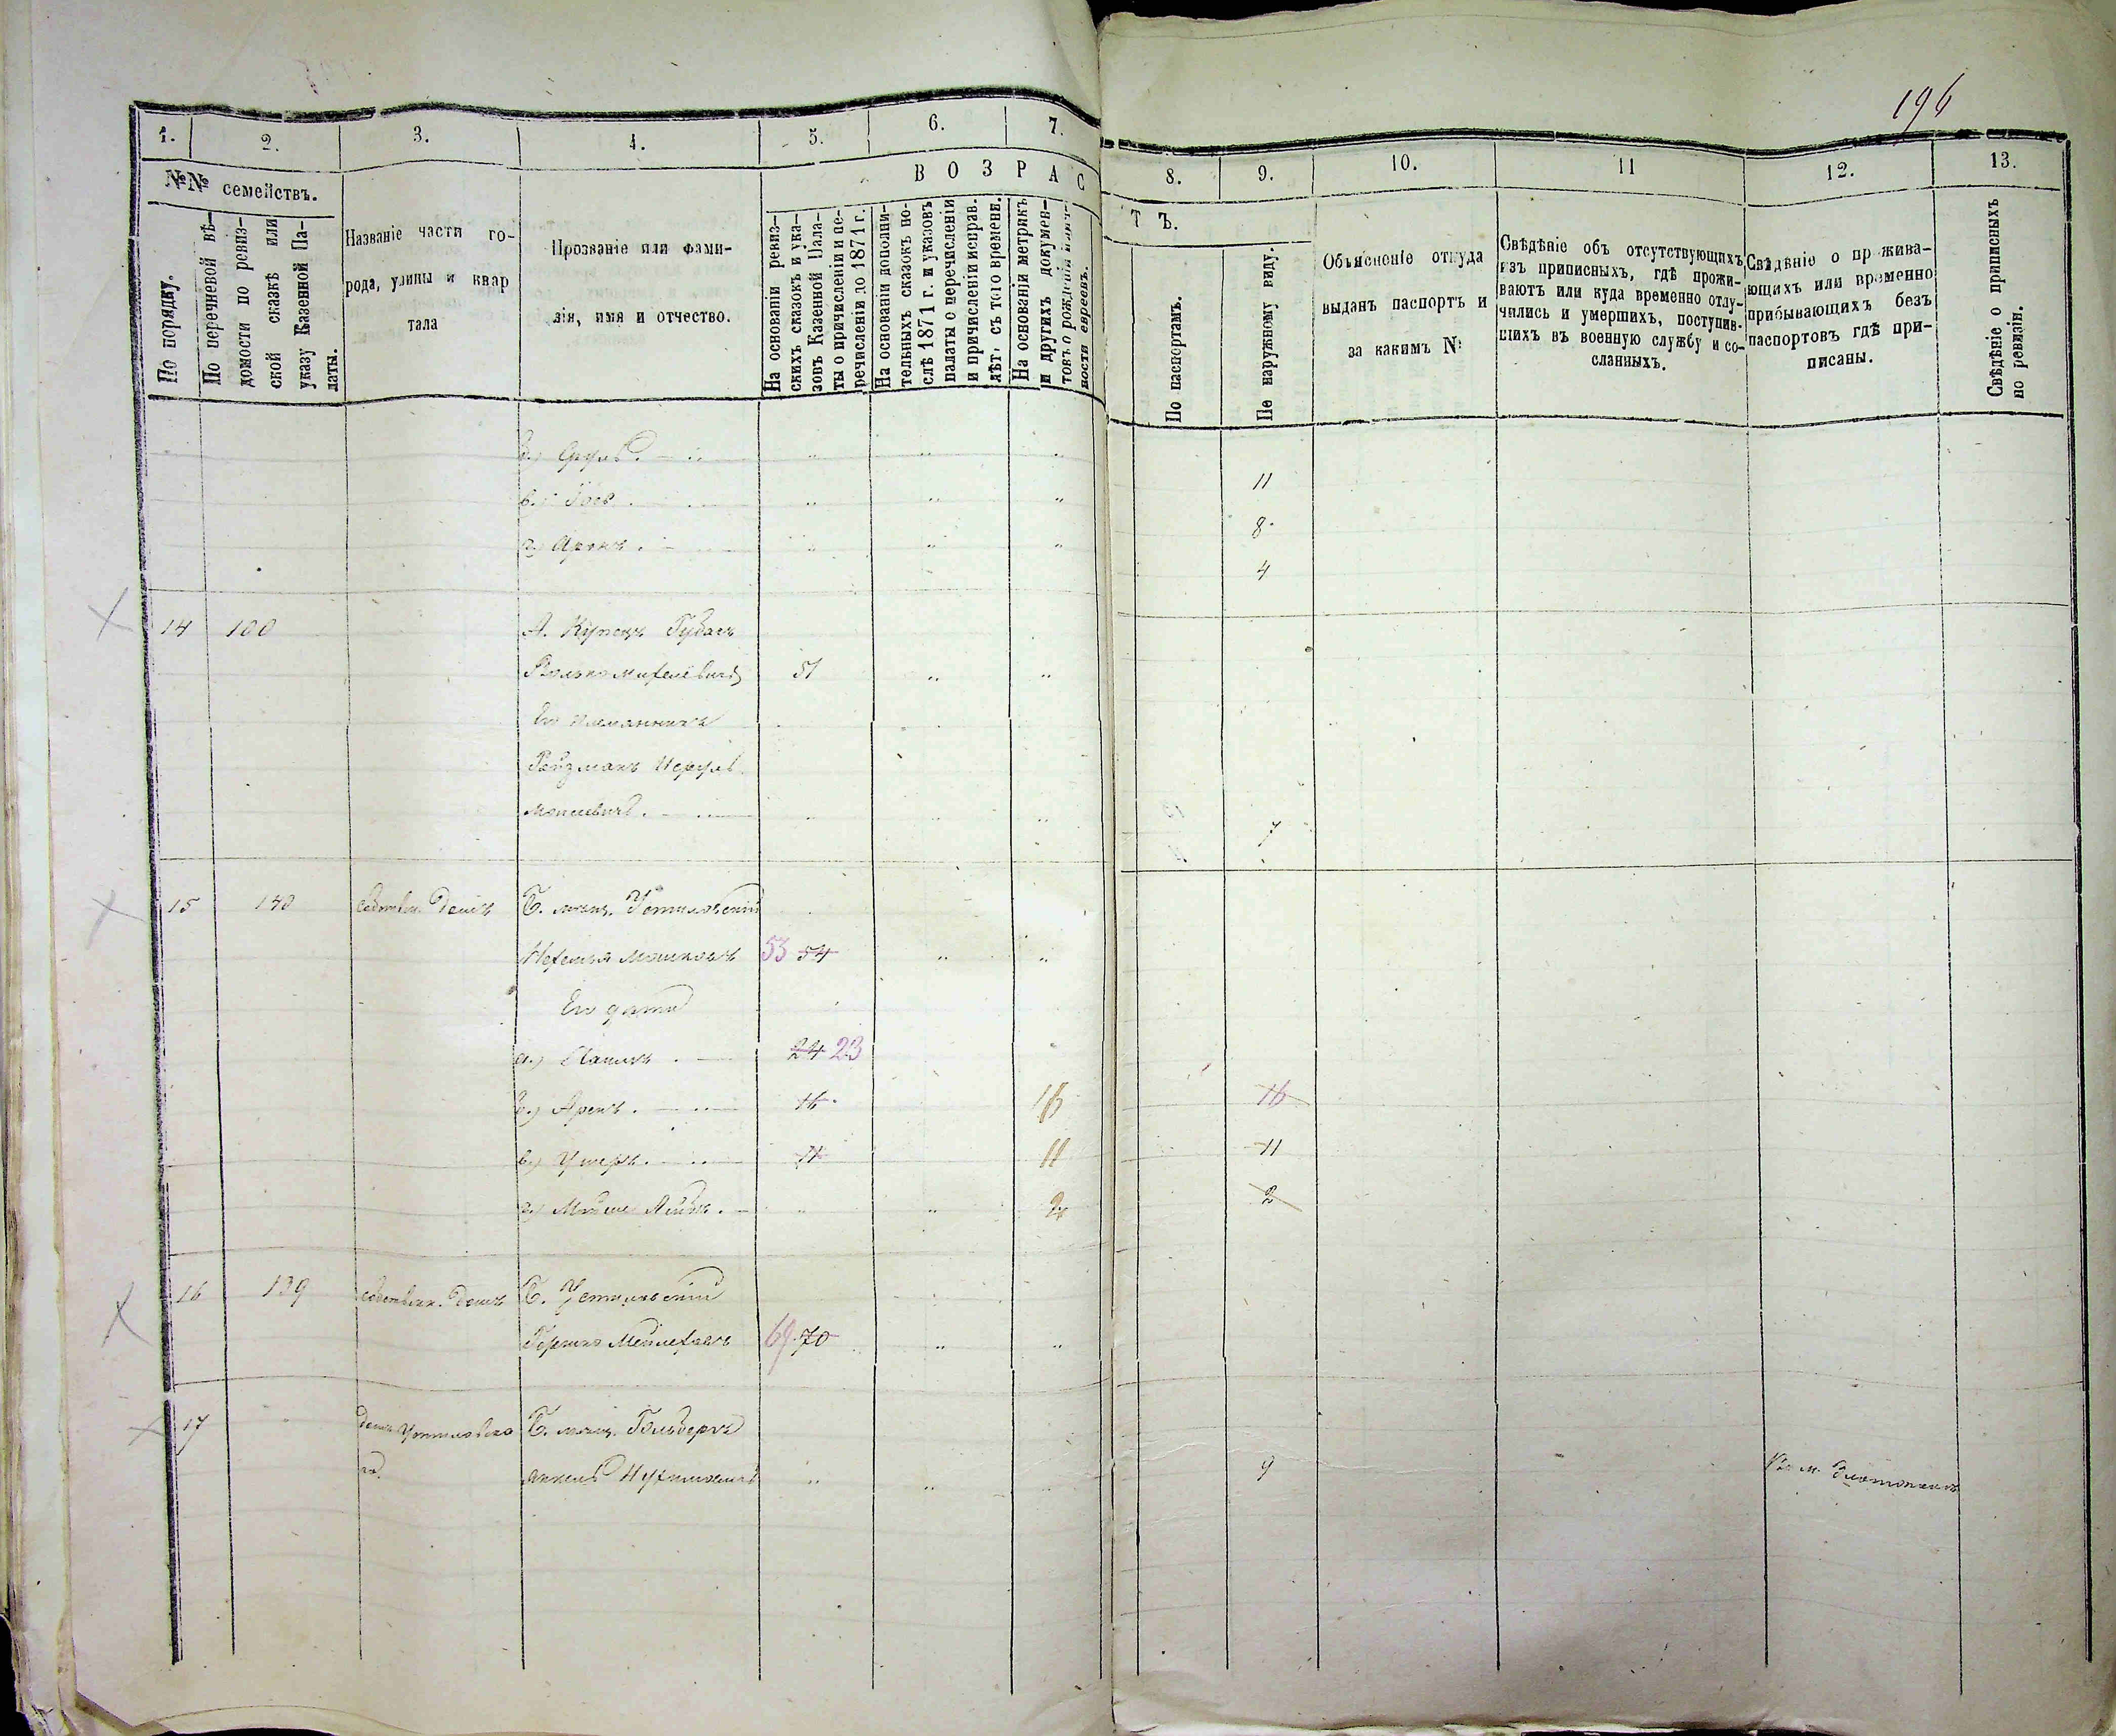 196
1. 2. 3. 4. 5. 6. 7. 8. 9. 10. 11 12. 13.
№№ семействъ.
По порядку.
По перечневой вѣ-
домости по ревиз-
ской сказкѣ или
указу Казенной Па-
латы.
Названіе части го-
рода, улицы и квар
тала
Прозваніе или фами-
лія, имя и отчество.
ВОЗРАС
ТЪ.
На основаніи ревиз-
скихъ сказокъ и ука-
зовъ Казенной Пала-
ты о причисленіи и пе-
речисленіи до 1871 г.
На основаніи дополни-
тельныхъ сказокъ по-
слѣ 1871 г. и указовъ
палаты о перечисленіи
и причисленіи исправ.
лѣт. съ того времени.
На основаніи метрикъ
и другихъ докумен-
товъ о рожденіи
ности евреевъ.
По паспортамъ.
По наружному виду.
Объясненіе откуда
выданъ паспортъ и
за какимъ №
Свѣдѣніе объ отсутствующихъ
изъ приписныхъ, гдѣ прожи-
ваютъ или куда временно отлу-
чились и умершихъ, поступив-
шихъ въ военную службу и со-
сланныхъ.
Свѣдѣніе о прожива-
ющихъ или временно
прибывающихъ безъ
паспортовъ гдѣ при-
писаны.
Свѣдѣніе о приписныхъ
по ревизіи.
б.) Сруль. " " " 11
в.) " " " 8
г.) Аронъ. " " " 4
14 100 А. Купецъ
Волько 51 " "
Его племянникъ
Гойзманъ
Мошковичъ. " " " 7
15 140 собствен. домъ Б. мѣщ. Устиловскій
Нехемья Мошковъ 53 54 " "
Его дѣти
а.) 24 23
б.) Аронъ. 16 16 16
в.) Ушеръ. 11 11 11
г.) " " 2 2
16 139 собственн. домъ Б. Устиловскій
Гершко 69 70 " "
17 домъ Устиловска Б. мѣщ. Гольбергъ
го. " " 9